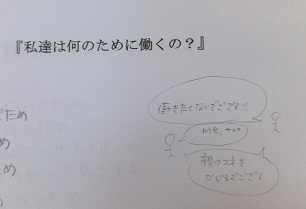 『私達は何のために働くの?』
働きたくないでござる!!
ため
me, too
め
親のスネを
ため
かじるでござる
の